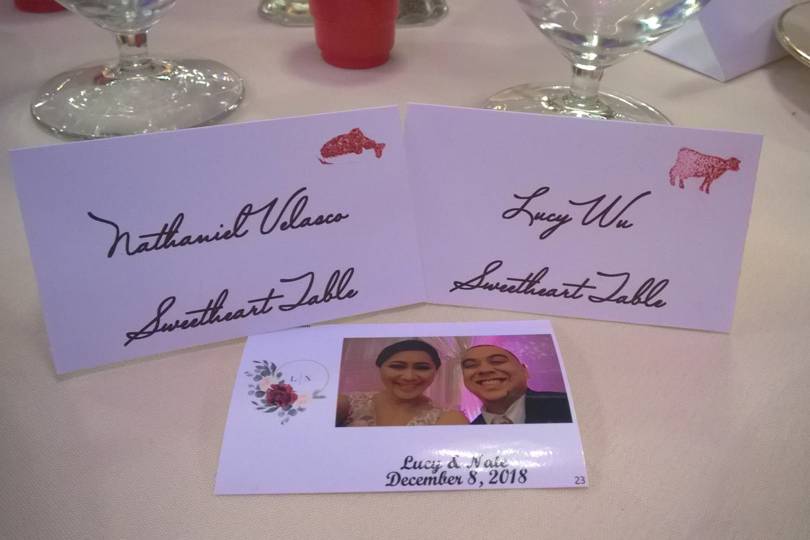 Nathaniel Velasco
Sweetheart Table
Lucy Wu
Sweetheart Table
L N
Lucy & Nate
December 8, 2018
23